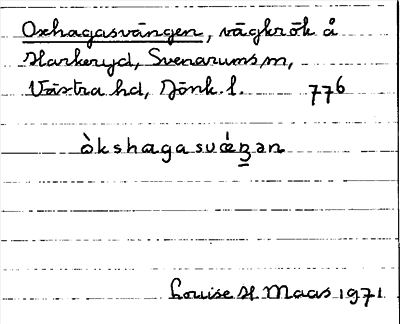 Oxhagasvängen, vägkrök å
Harkeryd, Svenarums sn,
Västra hd, Jönk. l. 776
òkshagasvǽŋən
Louise H. Maas 1971